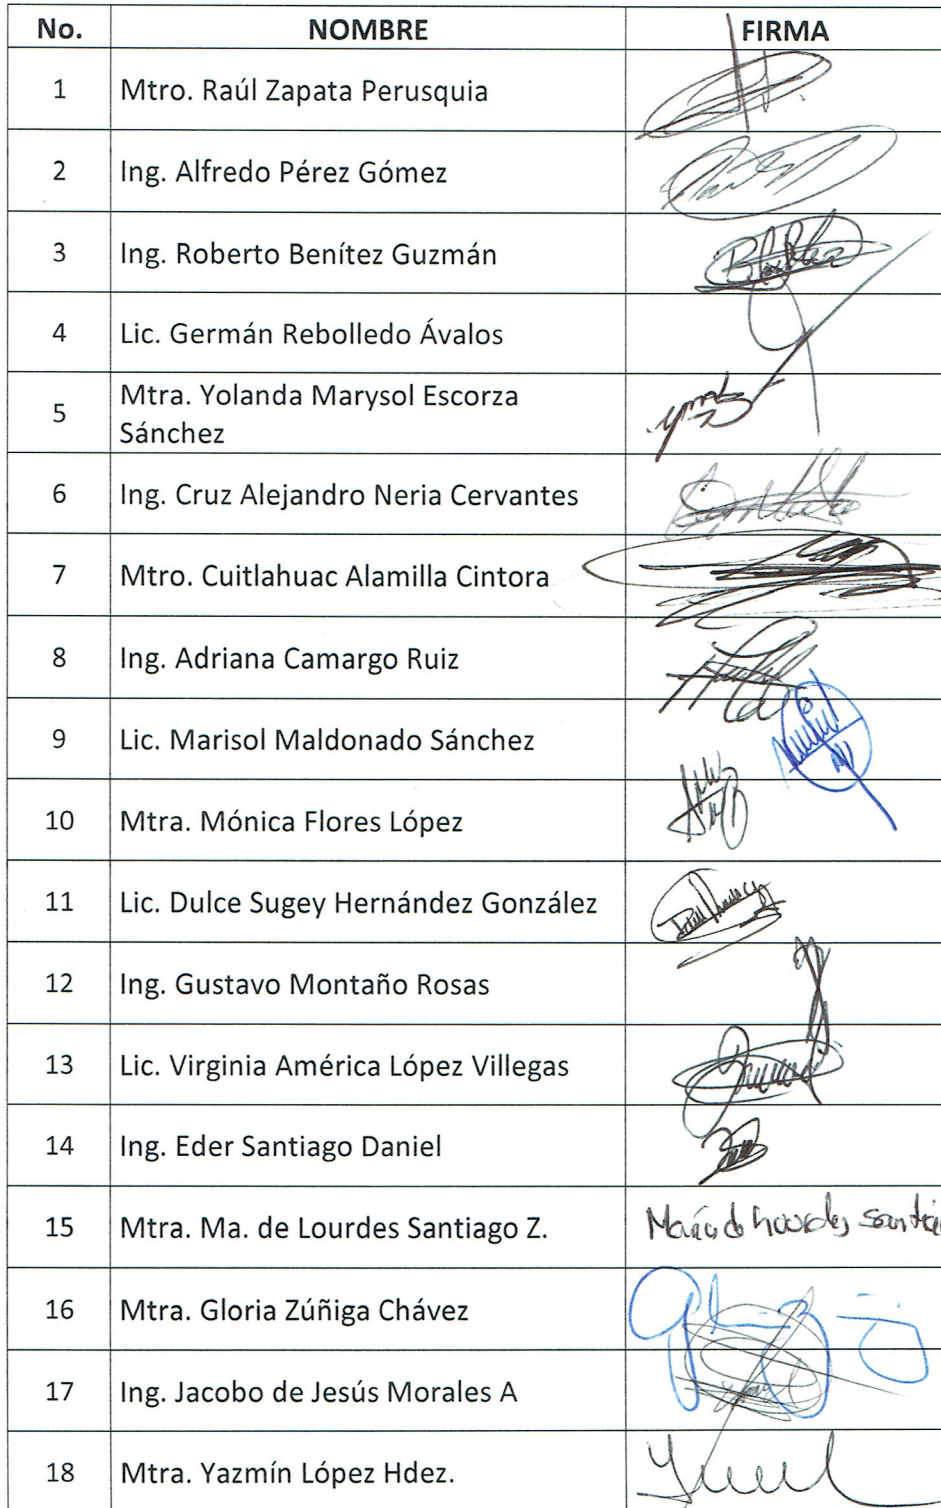 No. NOMBRE FIRMA
1 Mtro. Raúl Zapata Perusquia
2 Ing. Alfredo Pérez Gómez
3 Ing. Roberto Benítez Guzmán
4 Lic. Germán Rebolledo Ávalos
5 Mtra. Yolanda Marysol Escorza
Sánchez
6 Ing. Cruz Alejandro Neria Cervantes
7 Mtro. Cuitlahuac Alamilla Cintora
8 Ing. Adriana Camargo Ruiz
9 Lic. Marisol Maldonado Sánchez
10 Mtra. Mónica Flores López
11 Lic. Dulce Sugey Hernández González
12 Ing. Gustavo Montaño Rosas
13 Lic. Virginia América López Villegas
14 Ing. Eder Santiago Daniel
15 Mtra. Ma. de Lourdes Santiago Z. María de Lourdes
16 Mtra. Gloria Zúñiga Chávez
17 Ing. Jacobo de Jesús Morales A
18 Mtra. Yazmín López Hdez.